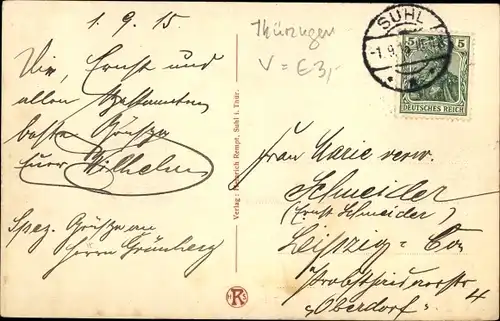 1. 9. 15.
Dir, Ernst und
allen Bekannten
beste Grüße
Euer Wilhelm
Spez. Grüße an
Herrn Grünberg
Thüringen
V = € 3,-
Verlag: Heinrich Rempt, Suhl i. Thür.
SUHL
1. 9. 15
5 5
DEUTSCHES REICH
Frau Marie verw.
Schneider
(Ernst Schneider)
Leipzig = Co.
Probstheidaerstr
4
"Oberdorf"